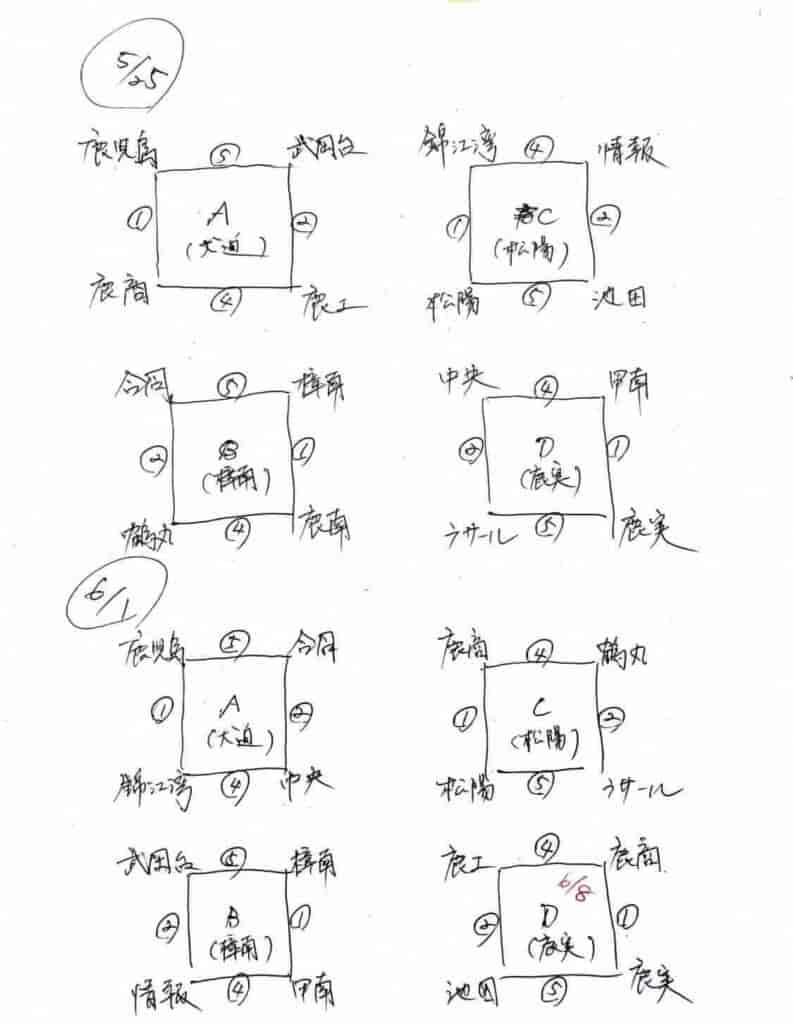 5/25
鹿児島 ⑤ 武岡台 錦江湾 ④ 情報
① A ② ① C ②
(犬迫) (松陽)
鹿商 ④ 鹿工 松陽 ⑤ 池田
⑤ 樟南 中央 ④ 甲南
② B ① ② D ①
(樟南) (鹿実)
鶴丸 ④ 鹿南 ラサール ⑤ 鹿実
6/1
鹿児島 ⑤ 鹿商 ④ 鶴丸
① A ② ① C ②
(犬迫) (松陽)
錦江湾 ④ 中央 松陽 ⑤ ラサール
武岡台 ⑤ 樟南 鹿工 ④ 鹿商
6/8
② B ① ② D ①
(樟南) (鹿実)
情報 ④ 甲南 池田 ⑤ 鹿実